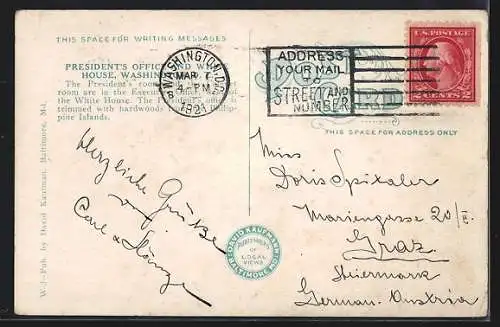 THIS SPACE FOR WRITING MESSAGES
PRESIDENT'S OFFICE AND WHITE
HOUSE, WASHINGTON
The President's room
room are in the Executive Office
the White House. The President's office is
trimmed with hardwoods Philip-
pine Islands.
WASHINGTON, D.C.
MAR 7
4-PM
1921
ADDRESS
YOUR MAIL
TO
STREET AND
NUMBER
U.S. POSTAGE
2 CENTS 2
THIS SPACE FOR ADDRESS ONLY
W-J-Pub. by David Kaufman, Baltimore, Md.
Herzliche Grüße
Carl &
DAVID KAUFMANN
PUBLISHER
OF
LOCAL
VIEWS
BALTIMORE MD
Miss
Doris Spitzler
Mariengasse 20/II.
Graz
Steiermark
German-Austria